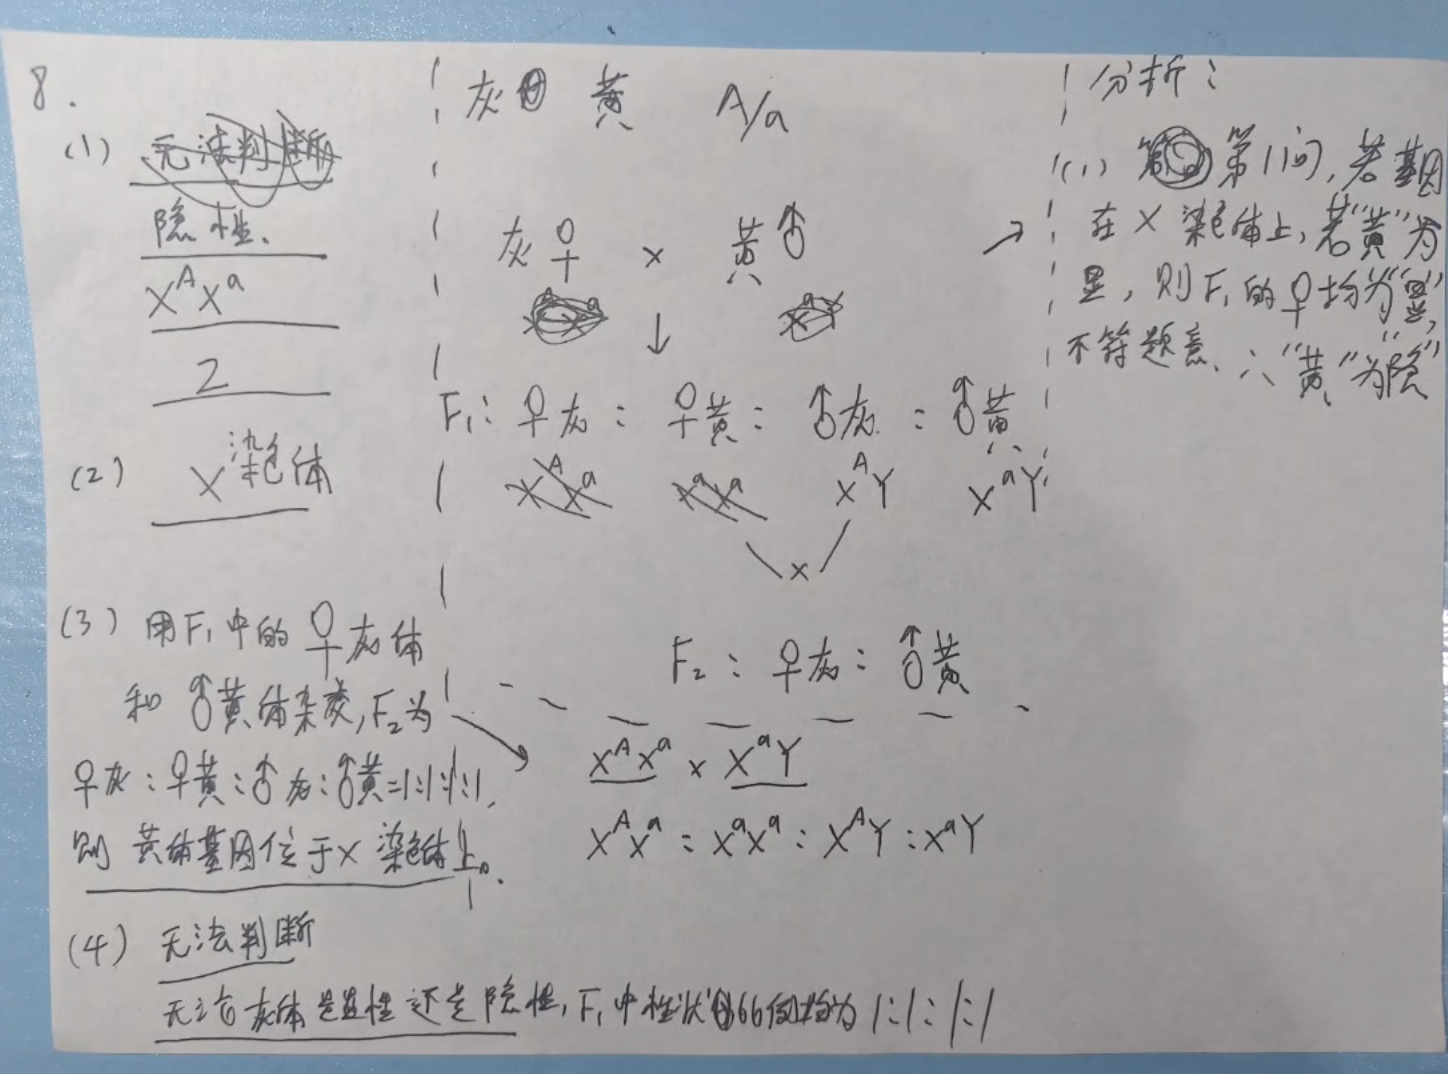 8.
(1) 无法判断
隐性.
X^A X^a
2
(2) X染色体
(3) 用F₁中的♀灰体
和♂黄体杂交,F₂为
♀灰:♀黄:♂灰:♂黄=1:1:1:1,
则黄体基因位于X染色体上。
(4) 无法判断
无论灰体是显性还是隐性,F₁中性状的比例均为1:1:1:1
灰 黄 A/a
灰♀ × 黄♂
↓
F₁: ♀灰: ♀黄: ♂灰: ♂黄
X^A X^a X^a X^a X^A Y X^a Y
×
F₂: ♀灰: ♂黄
X^A X^a × X^a Y
X^A X^a : X^a X^a : X^A Y : X^a Y
分析:
(1) 第(1)问,若基因
在X染色体上,若"黄"为
显,则F₁的♀均为"显",
不符题意.∴"黄"为"隐"